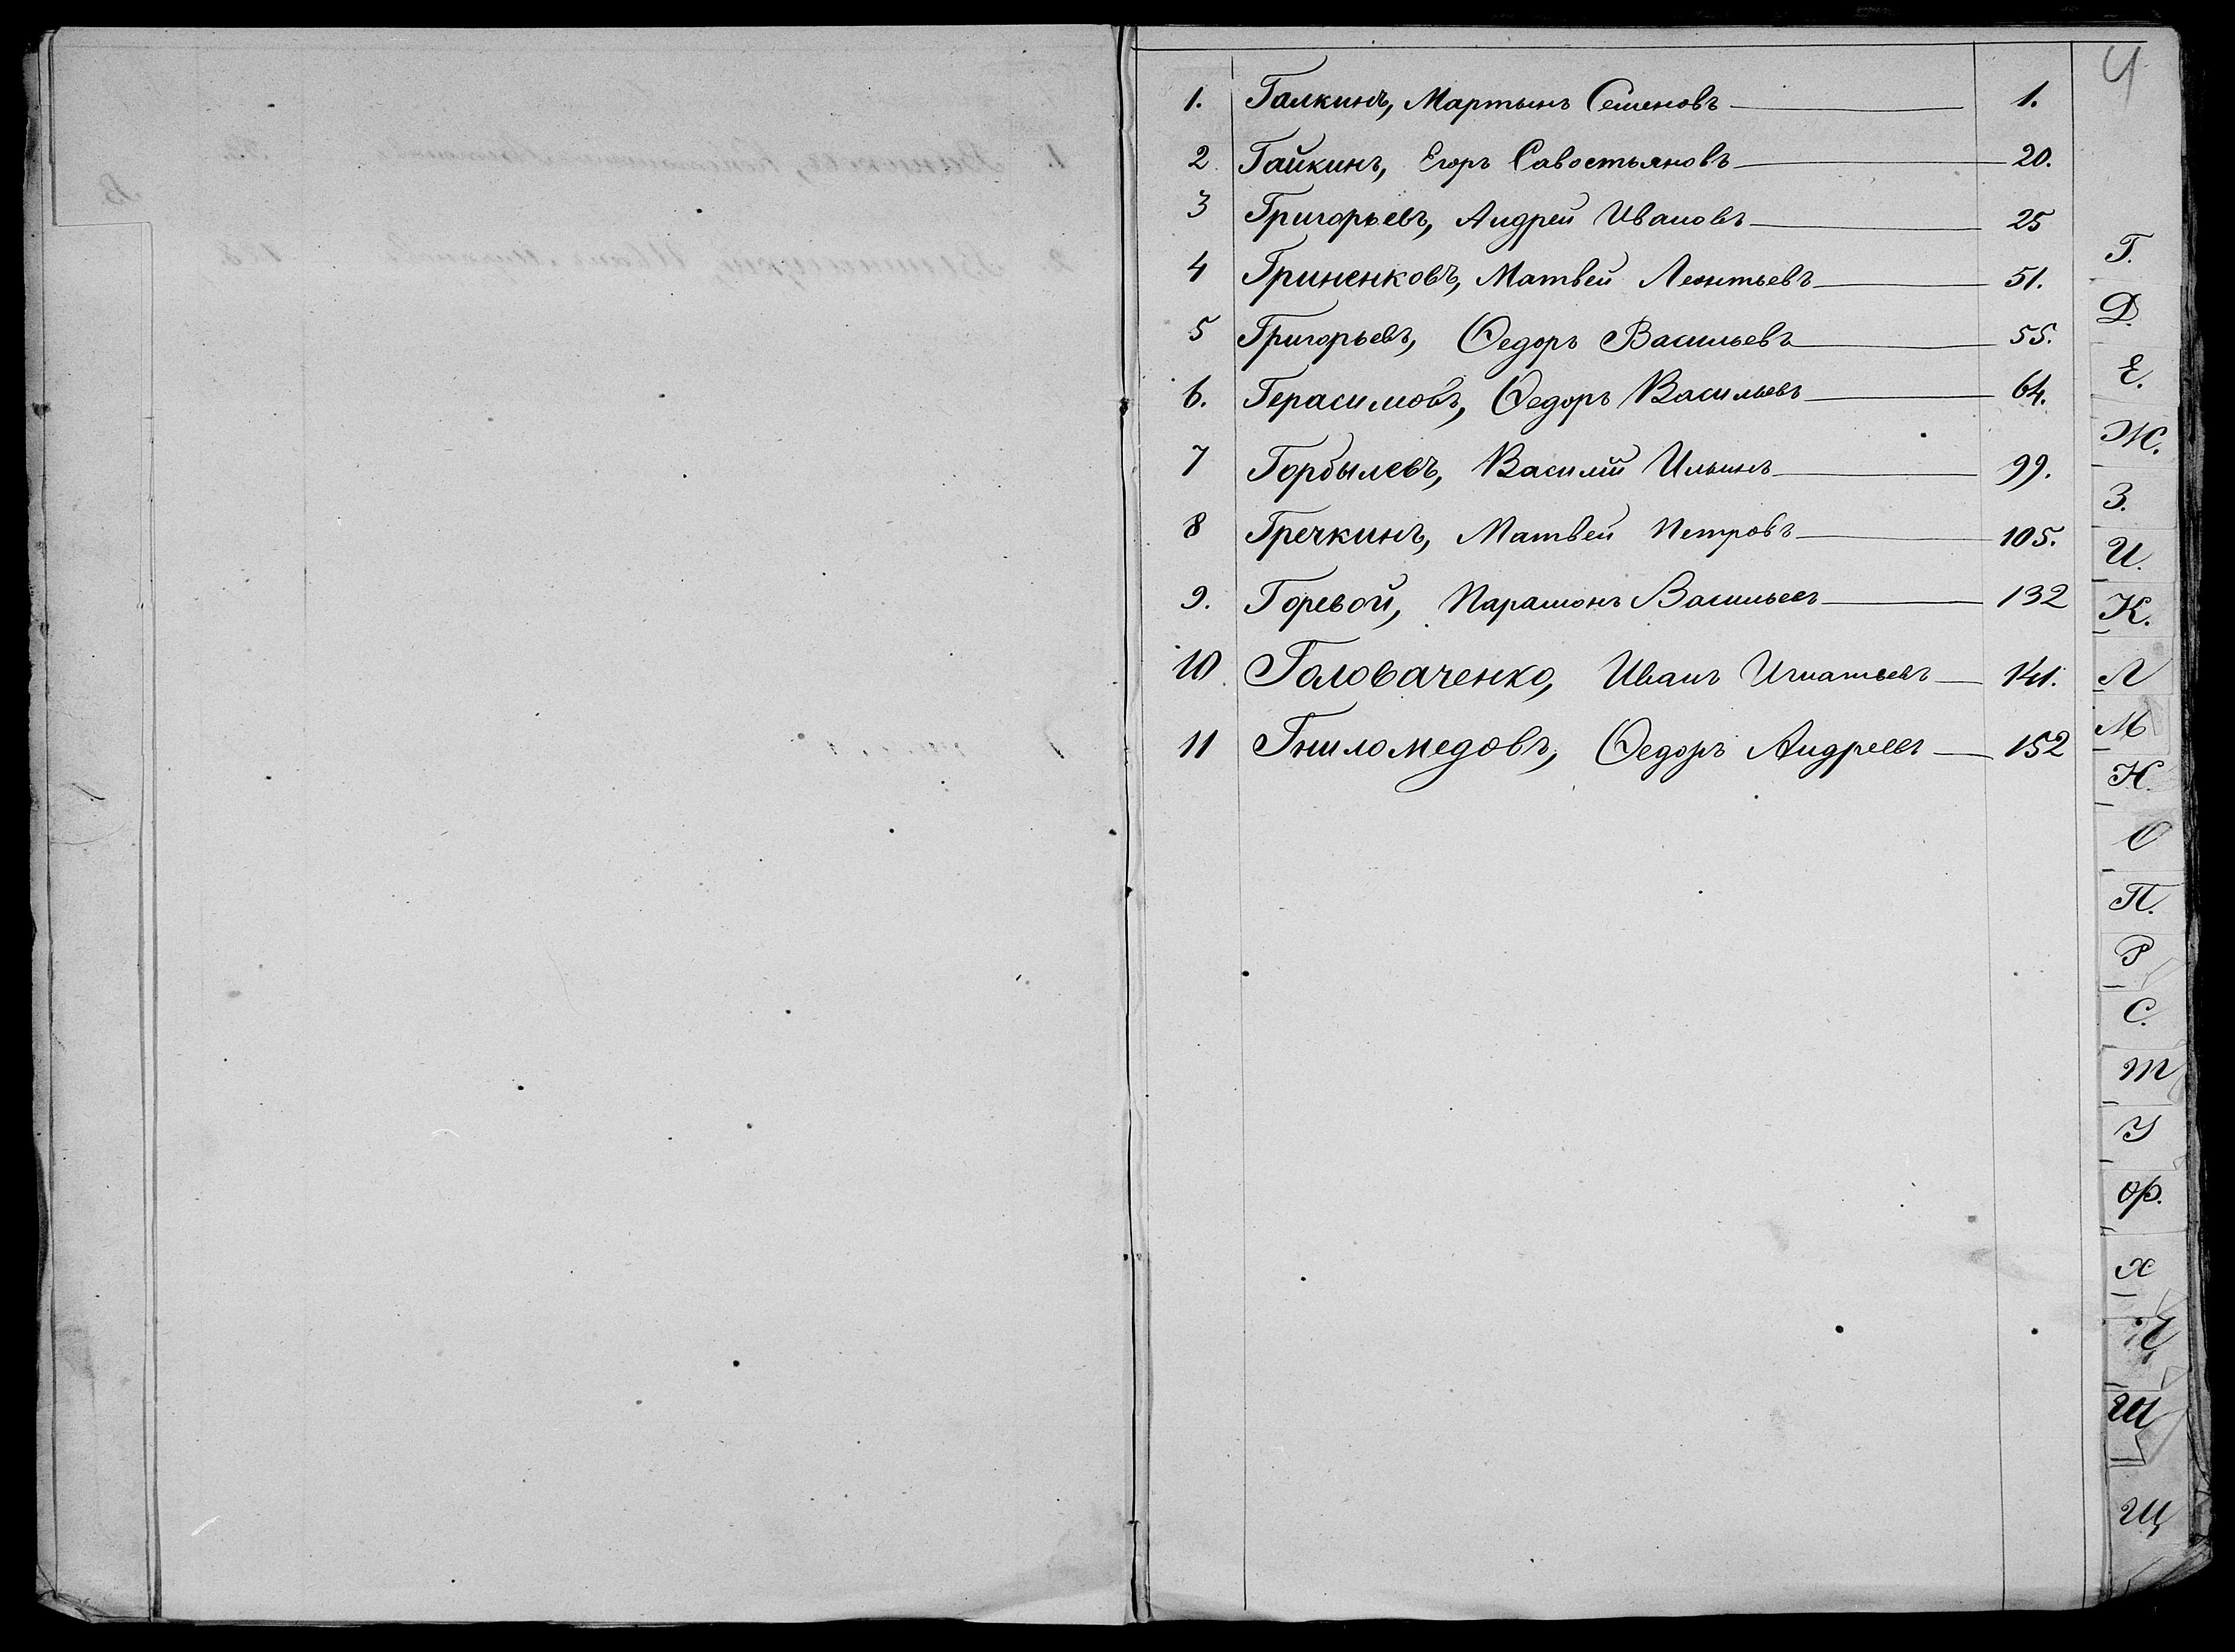 4
1. Галкинъ, Мартынъ Семеновъ 1.
2 Гайкинъ, Егоръ Савостьяновъ 20.
3 Григорьевъ, Андрей Ивановъ 25
4 Гриненковъ, Матвей Леонтьевъ 51.
5 Григорьевъ, Ѳедоръ Васильевъ 55.
6. Герасимовъ, Ѳедоръ Васильевъ 64.
7 Горбылевъ, Василій Ильинъ 99.
8 Гречкинъ, Матвей Петровъ 105.
9. Горевой, Парамонъ Васильевъ 132
10 Головаченко, Иванъ Игнатьевъ 141.
11 Гниломедовъ, Ѳедоръ Андреевъ 152
Г.
Д.
Е.
Ж.
З.
И.
К.
Л
М
Н.
О
П.
Р
С.
Т
У
Ф.
Х
Ц
Ш
Щ